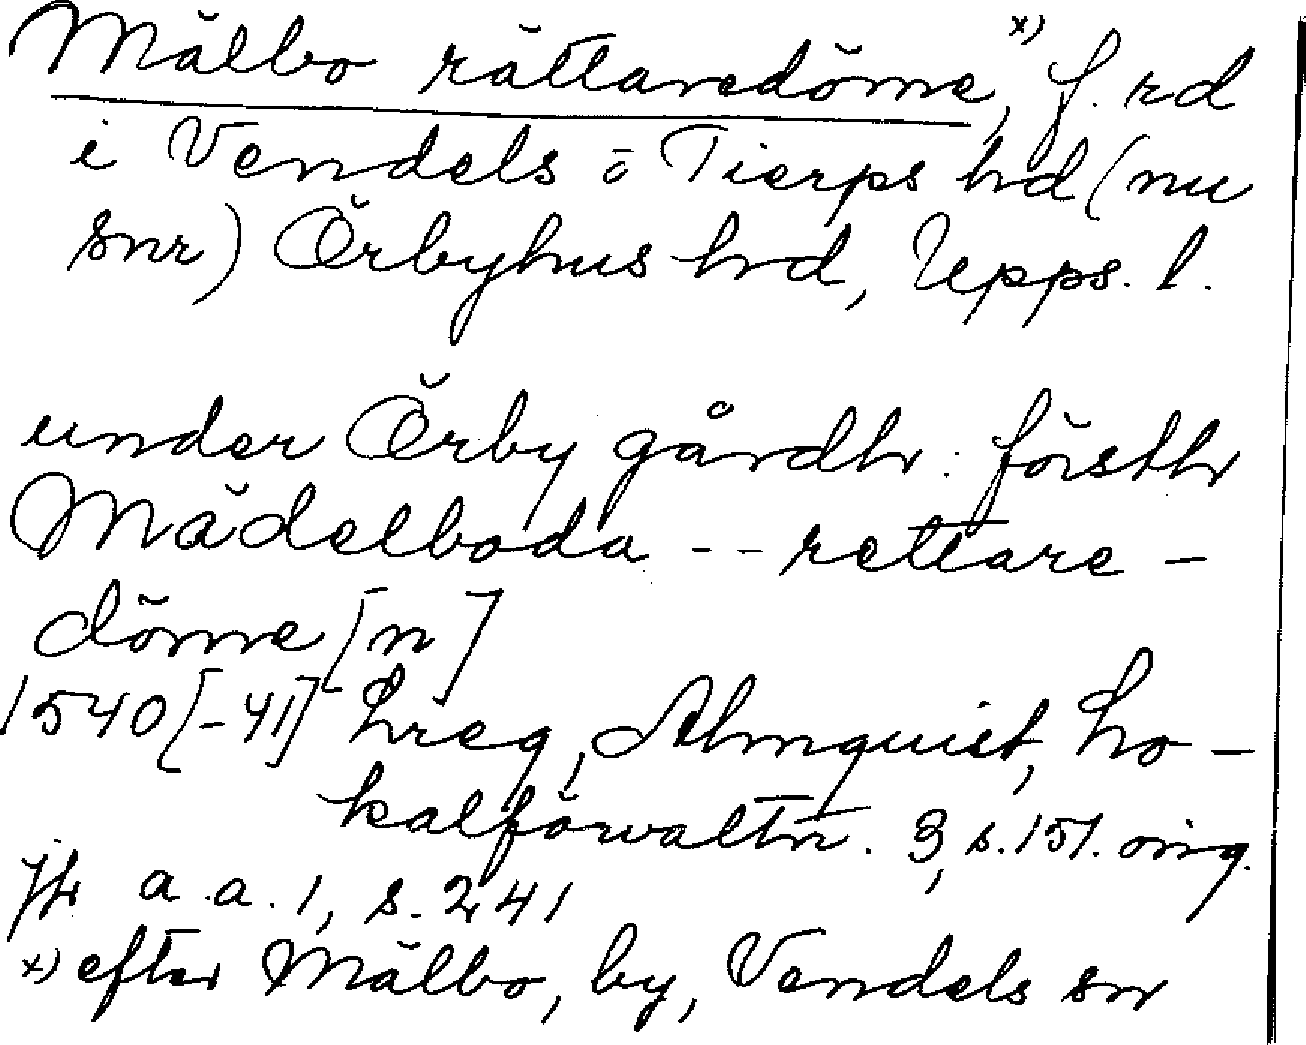 Mälbo rättaredöme, x) f. rd
i Vendels o Tierps hd (nu
snr) Örbyhus hd, Upps. l.
under Örby gårdh: försth
Mädelboda -- rettare-
döme [n]
1540[-41] hreg, Almquist, Lo-
kalförvaltn. 3, s. 151. omg.
Jfr a.a. 1, s. 241
x) efter Mälbo, by, Vendels sn